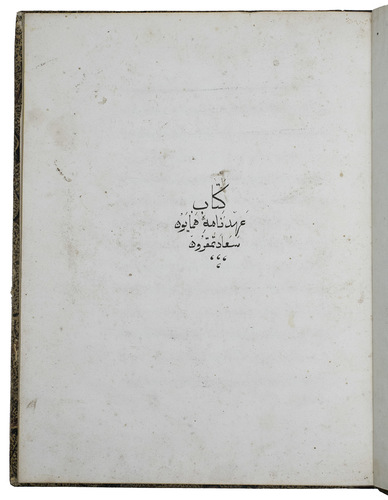 كتاب
عهدنامۀ همایون
سعادتمقرون